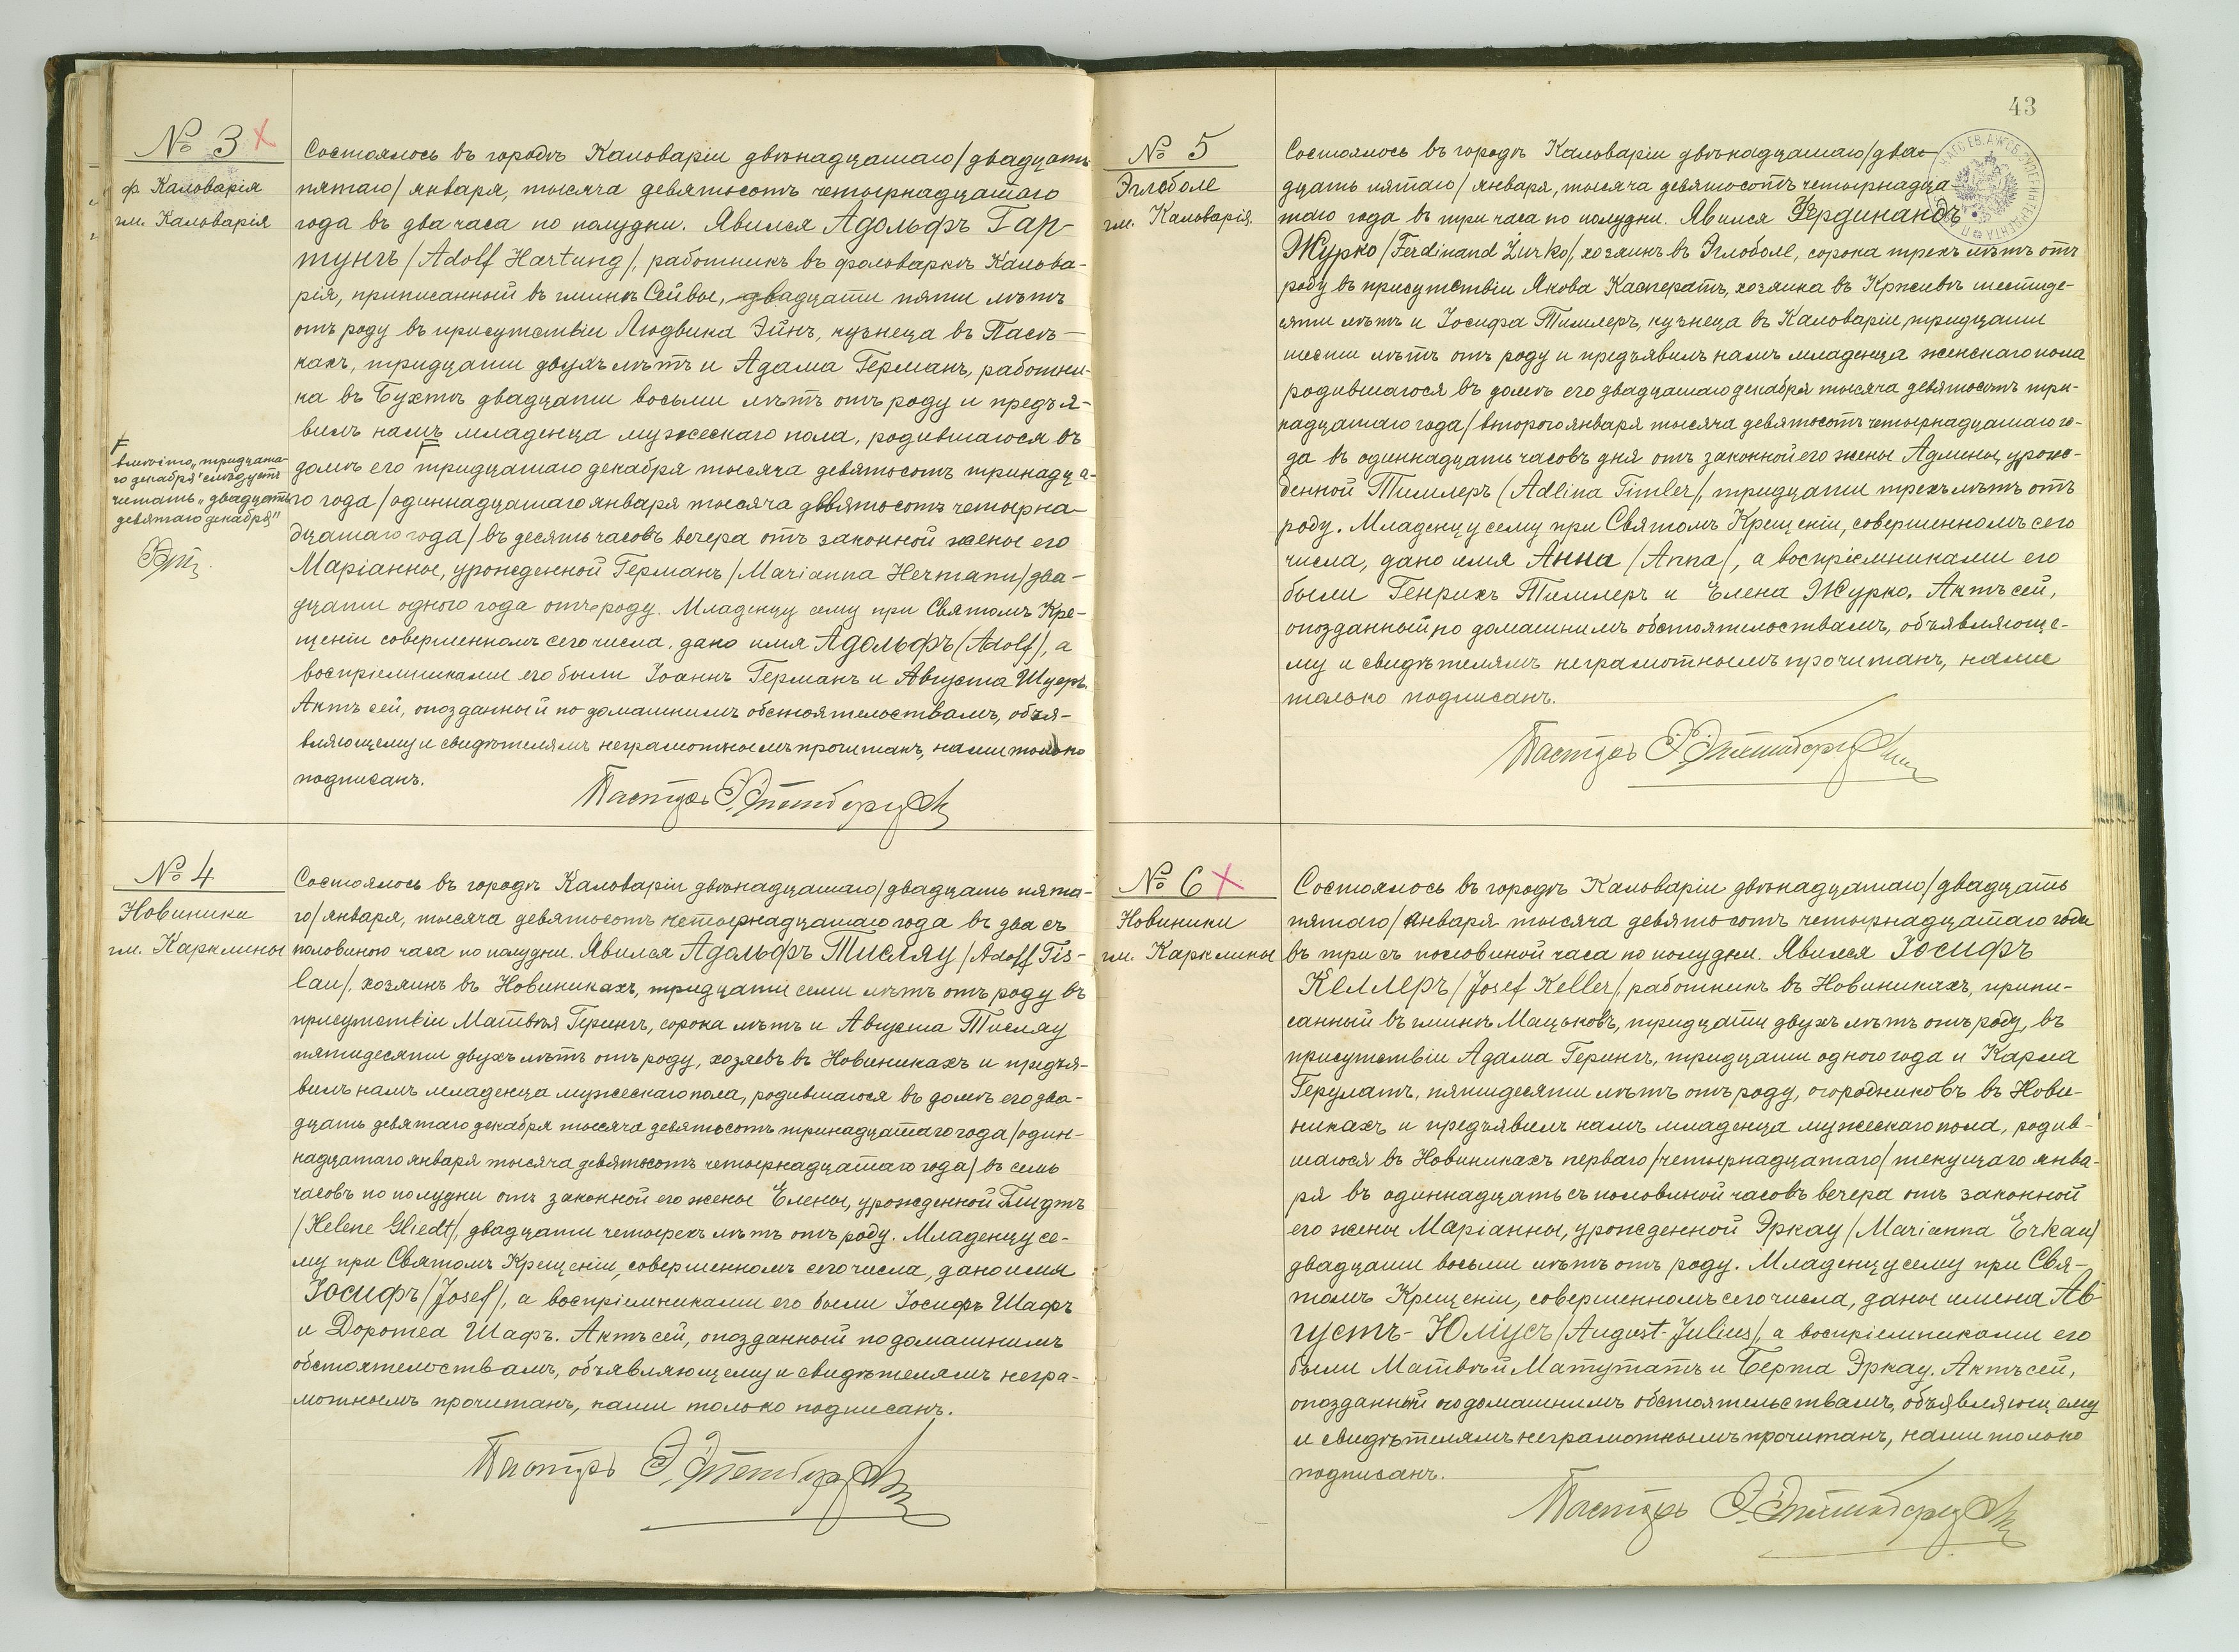 № 3 X
ф Кальварія
гм. Кальварія
Состоялось въ городѣ Кальваріи двѣнадцатаго/двадцать
пятаго/ января, тысяча девятьсотъ четырнадцатаго
года въ два часа по полудни. Явился Адольфъ Гар-
тунгъ /Adolf Hartung/, работникъ въ фольваркѣ Кальва-
рія, приписанный въ гминѣ Сейвы, двадцати пяти лѣтъ
отъ роду въ присутствіи Людвика Эйнъ, кузнеца въ Пасѣ-
кахъ, тридцати двухъ лѣтъ и Адама Германъ, работни-
ка въ Бухтѣ двадцати восьми лѣтъ отъ роду и предъя-
вилъ намъ младенца мужескаго пола, родившагося въ
домѣ его тридцатаго декабря тысяча девятьсотъ тринадца-
го года /одиннадцатаго января тысяча девятьсотъ четырна-
дцатаго года/ въ десять часовъ вечера отъ законной жены его
Маріанны, урожденной Германъ /Marianna Hermann/ два-
дцати одного года отъ роду. Младенцу сему при Святомъ Кре-
щеніи совершенномъ сего числа, дано имя Адольфъ (Adolf/, а
воспріемниками его были Іоаннъ Германъ и Августа Шуеръ.
Актъ сей, опозданный по домашнимъ обстоятельствамъ, объя-
вляющему и свидѣтелямъ неграмотнымъ прочитанъ, нами только
подписанъ.
вмѣсто „тридцата-
го декабря" слѣдуетъ
читать „двадцать
девятаго декабря"
Пасторъ
№ 4
Новиники
гм. Карклины
Состоялось въ городѣ Кальваріи двѣнадцатаго/двадцать пята-
го/ января, тысяча девятьсотъ четырнадцатаго года въ два съ
половиною часа по полудни. Явился Адольфъ Тислау /Adolf Tis-
lau/, хозяинъ въ Новиникахъ, тридцати семи лѣтъ отъ роду въ
присутствіи Матвѣя Герингъ, сорока лѣтъ и Августа Тислау
пятидесяти двухъ лѣтъ отъ роду, хозяевъ въ Новиникахъ и предъя-
вилъ намъ младенца мужескаго пола, родившагося въ домѣ его два-
дцать девятаго декабря тысяча девятьсотъ тринадцатаго года /один-
надцатаго января тысяча девятьсотъ четырнадцатаго года/ въ семь
часовъ по полудни отъ законной его жены Елены, урожденной Глидтъ
/Helene Gliedt/, двадцати четырехъ лѣтъ отъ роду. Младенцу се-
му при Святомъ Крещеніи, совершенномъ сего числа, дано имя
Іосифъ /Josef/, а воспріемниками его были Іосифъ Шафъ
и Доротеа Шафъ. Актъ сей, опозданный по домашнимъ
обстоятельствамъ, объявляющему и свидѣтелямъ негра-
мотнымъ прочитанъ, нами только подписанъ.
Пасторъ
43
№ 5
Эглоболе
гм. Кальварія
Состоялось въ городѣ Кальваріи двѣнадцатаго/два-
дцать пятаго/ января, тысяча девятьсотъ четырнадца-
таго года въ три часа по полудни. Явился Фердинандъ
Журко /Ferdinand Żurko/, хозяинъ въ Эглоболе, сорока трехъ лѣтъ отъ
роду въ присутствіи Якова Касператъ, хозяина въ Крживѣ шестиде-
сяти лѣтъ и Іосифа Тимлеръ, кузнеца въ Кальваріи, тридцати
шести лѣтъ отъ роду и предъявилъ намъ младенца женскаго пола
родившагося въ домѣ его двадцатаго декабря тысяча девятьсотъ три-
надцатаго года /второго января тысяча девятьсотъ четырнадцатаго го-
да въ одиннадцать часовъ дня отъ законной его жены Адлины, урож-
денной Тимлеръ (Adlina Timler/, тридцати трехъ лѣтъ отъ
роду. Младенцу сему при Святомъ Крещеніи, совершенномъ сего
числа, дано имя Анна /Anna/, а воспріемниками его
были Генрихъ Тимлеръ и Елена Журко. Актъ сей,
опозданный по домашнимъ обстоятельствамъ, объявляюще-
му и свидѣтелямъ неграмотнымъ прочитанъ, нами
только подписанъ.
Пасторъ
№ 6 X
Новиники
гм. Карклины
Состоялось въ городѣ Кальваріи двѣнадцатаго/двадцать
пятаго/ января тысяча девятьсотъ четырнадцатаго года
въ три съ половиной часа по полудни. Явился Іосифъ
Келлеръ /Josef Keller/, работникъ въ Новиникахъ, припи-
санный въ гминѣ Мацьковъ, тридцати двухъ лѣтъ отъ роду, въ
присутствіи Адама Герингъ, тридцати одного года и Карла
Герулатъ, пятидесяти лѣтъ отъ роду, огородниковъ въ Нови-
никахъ и предъявилъ намъ младенца мужескаго пола, родив-
шагося въ Новиникахъ перваго/четырнадцатаго/ текущаго янва-
ря въ одиннадцать съ половиной часовъ вечера отъ законной
его жены Маріанны, урожденной Эркау /Marianna Erkau/
двадцати восьми лѣтъ отъ роду. Младенцу сему при Свя-
томъ Крещеніи, совершенномъ сего числа, даны имена Ав-
густъ-Юліусъ /August-Julius/, а воспріемниками его
были Матвѣй Матутатъ и Берта Эркау. Актъ сей,
опозданный по домашнимъ обстоятельствамъ, объявляющему
и свидѣтелямъ неграмотнымъ прочитанъ, нами только
подписанъ.
Пасторъ